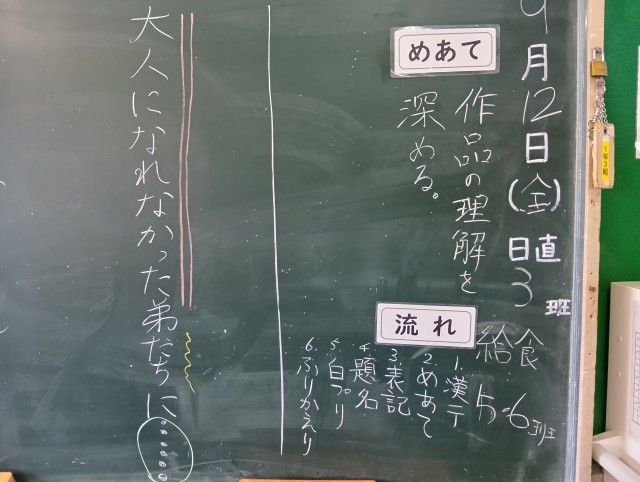 9月12日(金)
日直3班
給食5・6班
1年3組
めあて
作品の理解を
深める。
流れ
1.漢テ
2.めあて
3.表記
4.題名
5.白プリ
6.ふりかえり
大人になれなかった弟たちに……